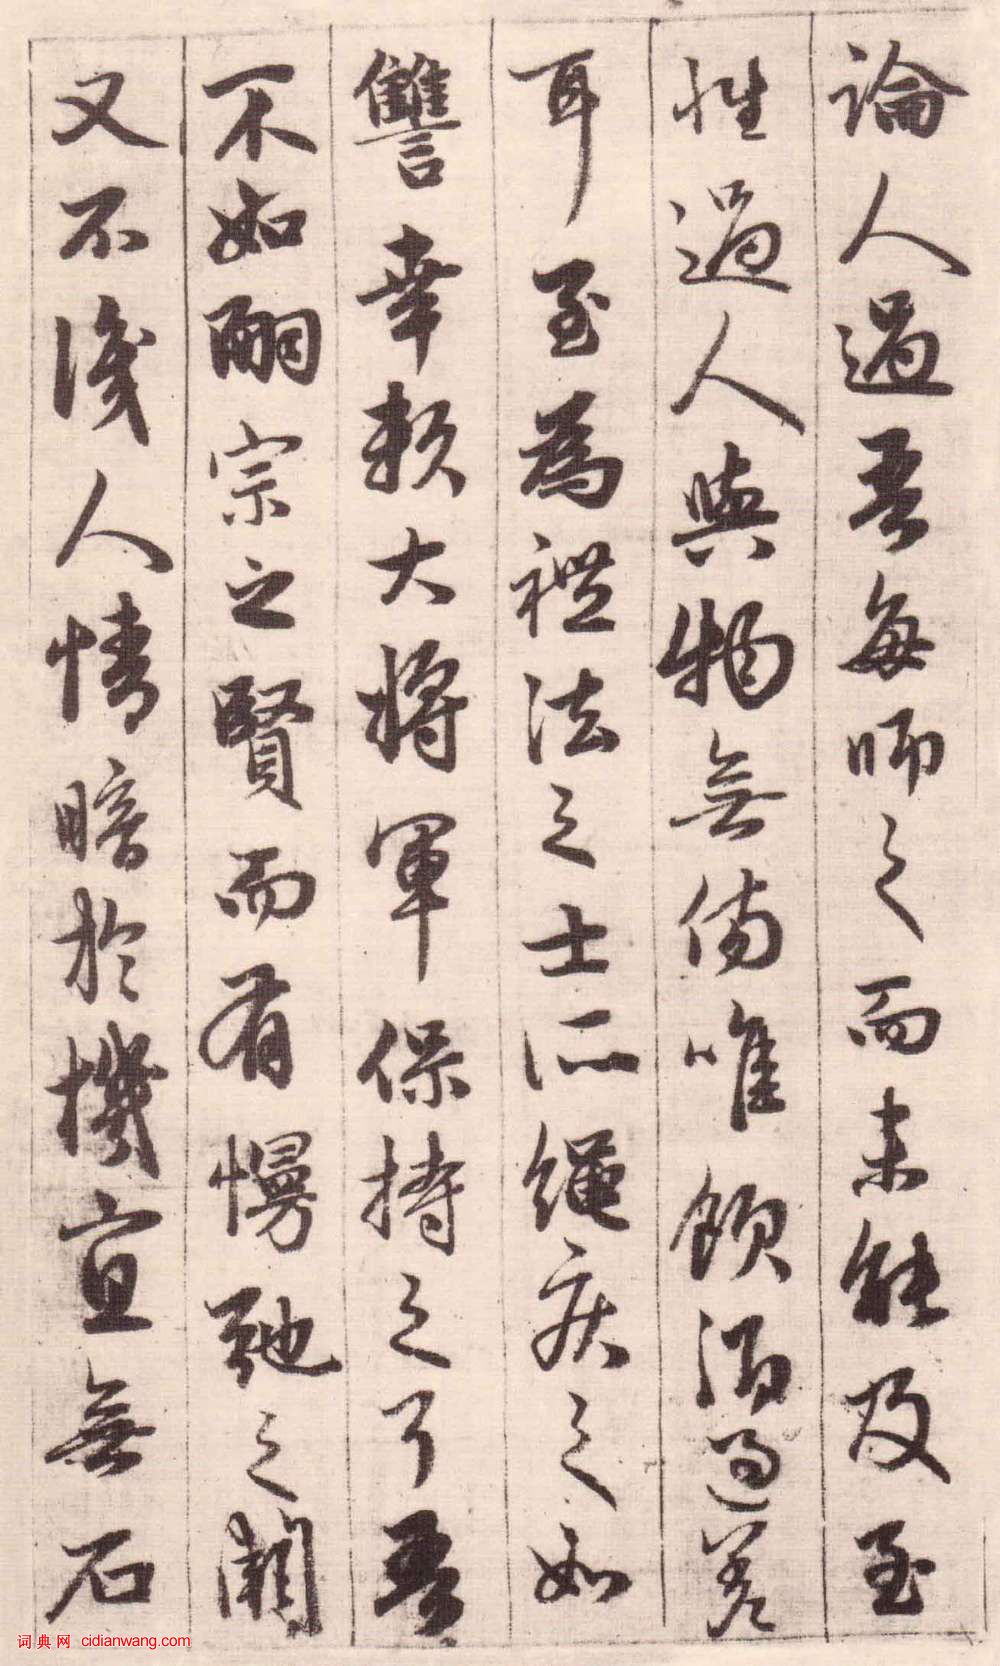 論人過吾每師之而未能及至
性過人與物無傷唯飲酒過差
耳至為禮法之士所繩疾之如
讐幸賴大將軍保持之耳吾
不如嗣宗之賢而有慢弛之闕
又不識人情暗於機宜無石
词典网 cidianwang.com